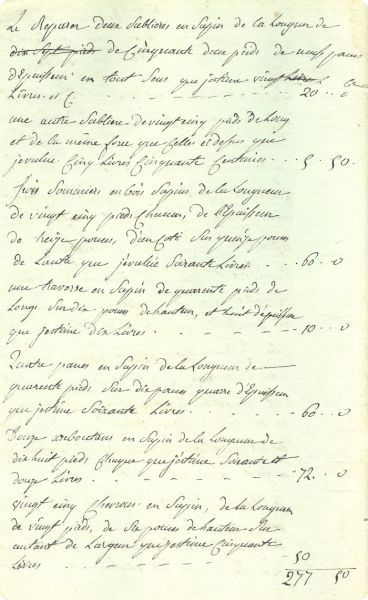 Le Reparer deux Sablieres en Sapin de la Longueur de
dix Sept pieds de Cinquante deux pieds de neuf pouces
d'Epaisseur en tout Sens que jestime vingt
Livres et C - - - - - - - 20 .. 0
une autre Sabliere de vingt cinq pieds de Long
et de la même force que Celles cy dessus que
jevalue Cinq Livres Cinquante Centimes - - - 5 . 50.
Trois Sommiers en bois Sapin de la Longueur
de vingt cinq pieds Chacun, de l'Epaisseur
de treize pouces, d'un Coté Sur quinze pouces
de L'autre que jevalue Soixante Livres - - - 60 .. 0
une traverse en Sapin de quarente pieds de
Longs Sur dix pouces de hauteur, et huit d'epaisseur
que jestime dix Livres - - - - - - 10 .. 0
Quatre panes en Sapin de la Longueur de
quarente pieds Sur dix pouces quarré d'Epaisseur
que jestime Soixante Livres - - - - 60 .. 0
Douze arcboutans en Sapin de la Longueur de
dix huit pieds Chaque que jestime Soixante et
douze Livres - - - - - - - 72. .. 0
vingt cinq Chevrons en Sapin, de la Longueur
de vingt pieds, de Six pouces de hauteur Sur
autant de Largeur que jestime Cinquante
Livres - - - - - - - 50
277 50